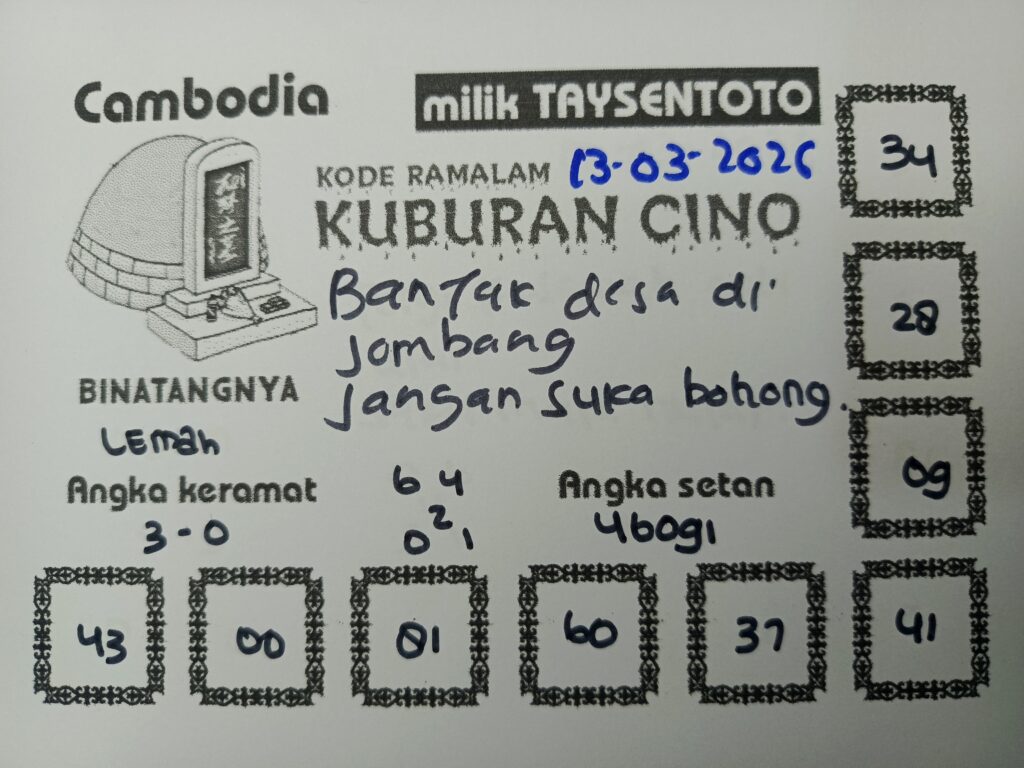 Cambodia
milik TAYSENTOTO
KODE RAMALAM 13-03-2026
KUBURAN CINO
Banyak desa di
jombang
jangan suka bohong.
BINATANGNYA
LEmah
Angka keramat
3-0
6 4
2
0 1
Angka setan
46091
34
28
09
43
00
01
60
37
41